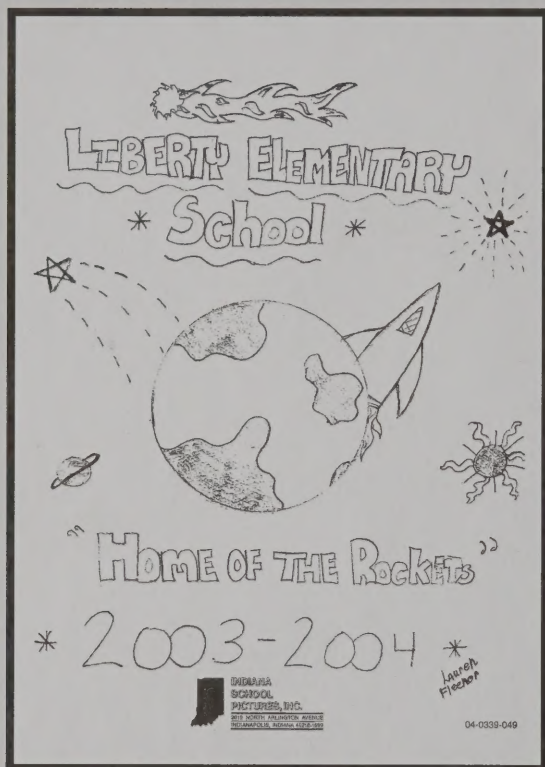 LIBERTY ELEMENTARY
* School *
"HOME OF THE ROCKETS"
* 2003-2004 *
Lauren
Fleenor
INDIANA
SCHOOL
PICTURES, INC.
NORTH ARLINGTON AVENUE
INDIANAPOLIS, INDIANA
04-0339-049